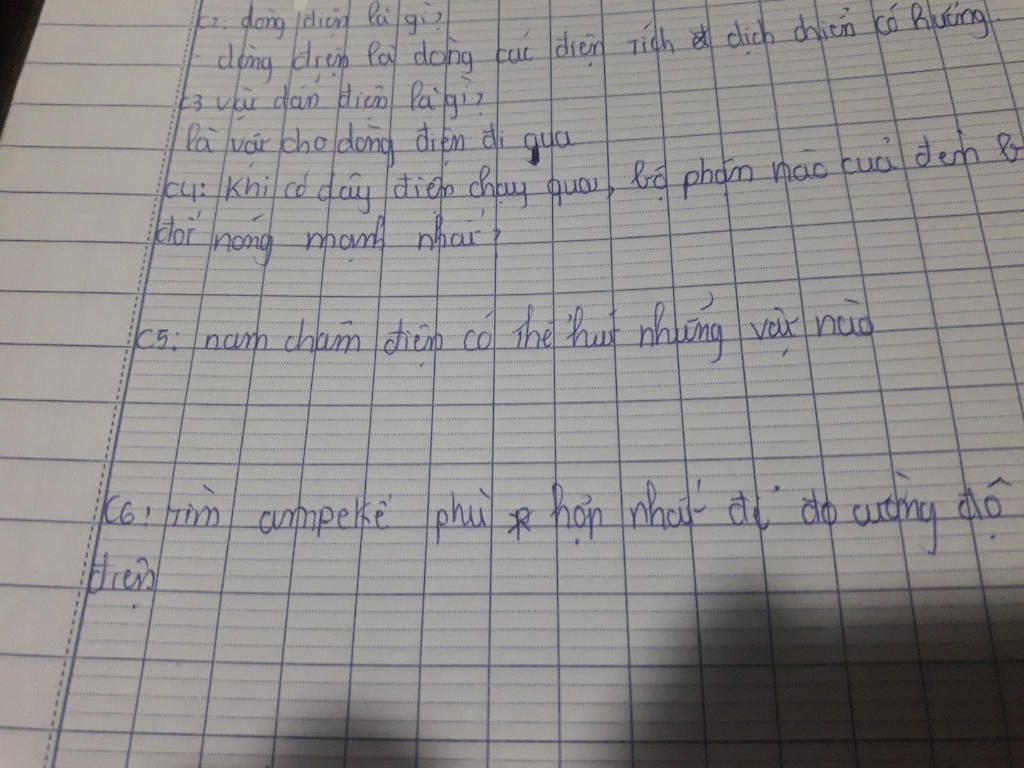 C2: dòng điện là gì?
- dòng điện là dòng các điện tích dịch chuyển có hướng.
C3 vật dẫn điện là gì?
là vật cho dòng điện đi qua
C4: Khi có dây điện chạy qua, bộ phận nào của đèn bị
đốt nóng mạnh nhất?
C5: nam châm điện có thể hút những vật nào
C6: Tìm ampekế phù hợp nhất để đo cường độ
điện